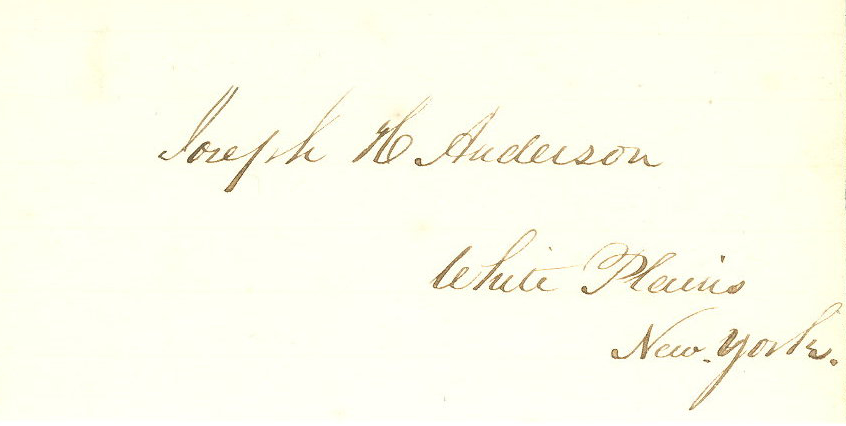 Joseph H Anderson
White Plains
New York.